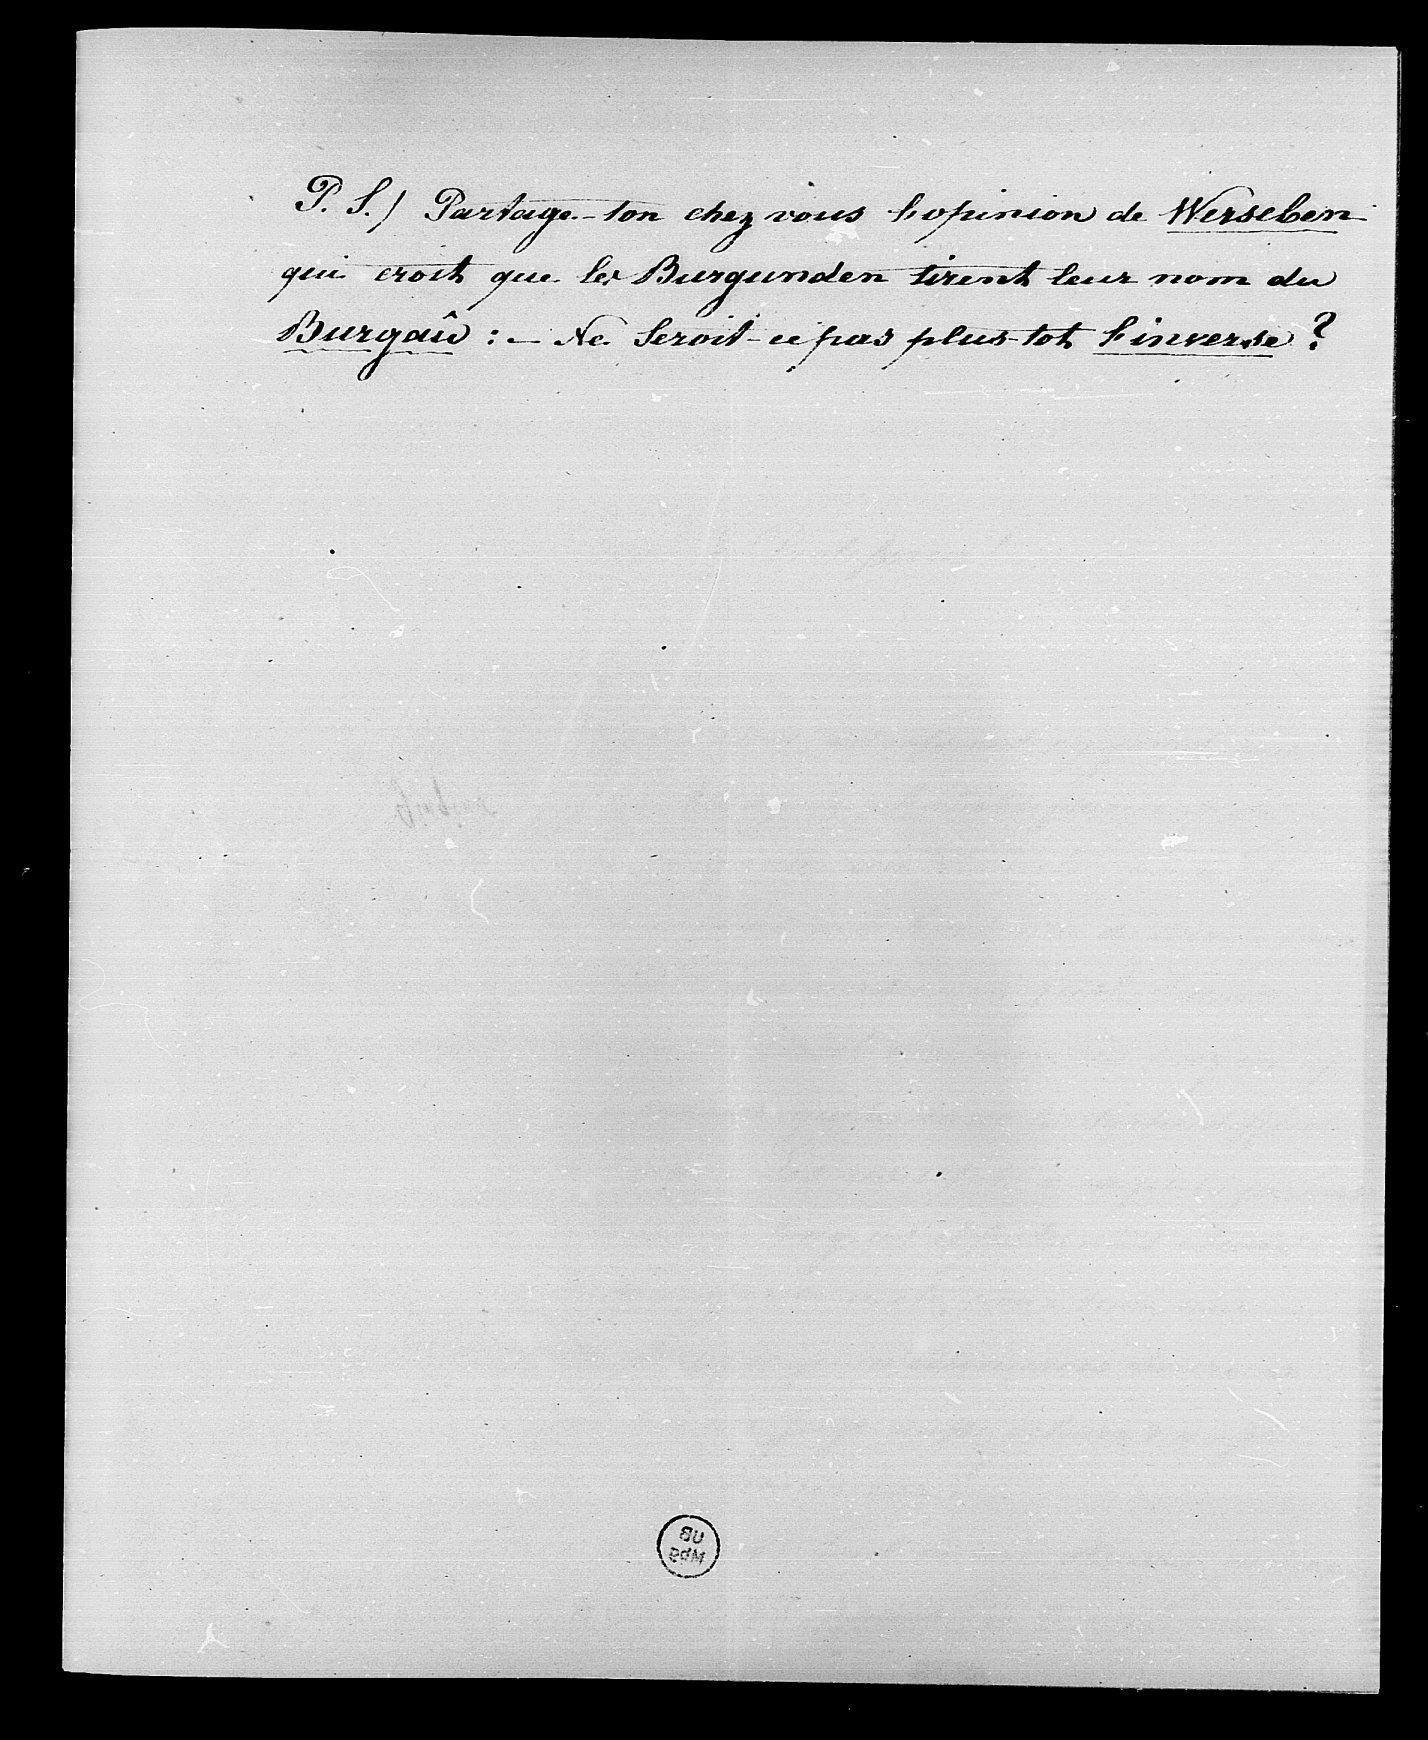 P. S.) Partage-ton chez vous l'opinion de Werseben
qui croit que les Burgunden tirent leur nom du
Burgaû : — Ne seroit-ce pas plus-tot l'inverse ?
UB
Mbg